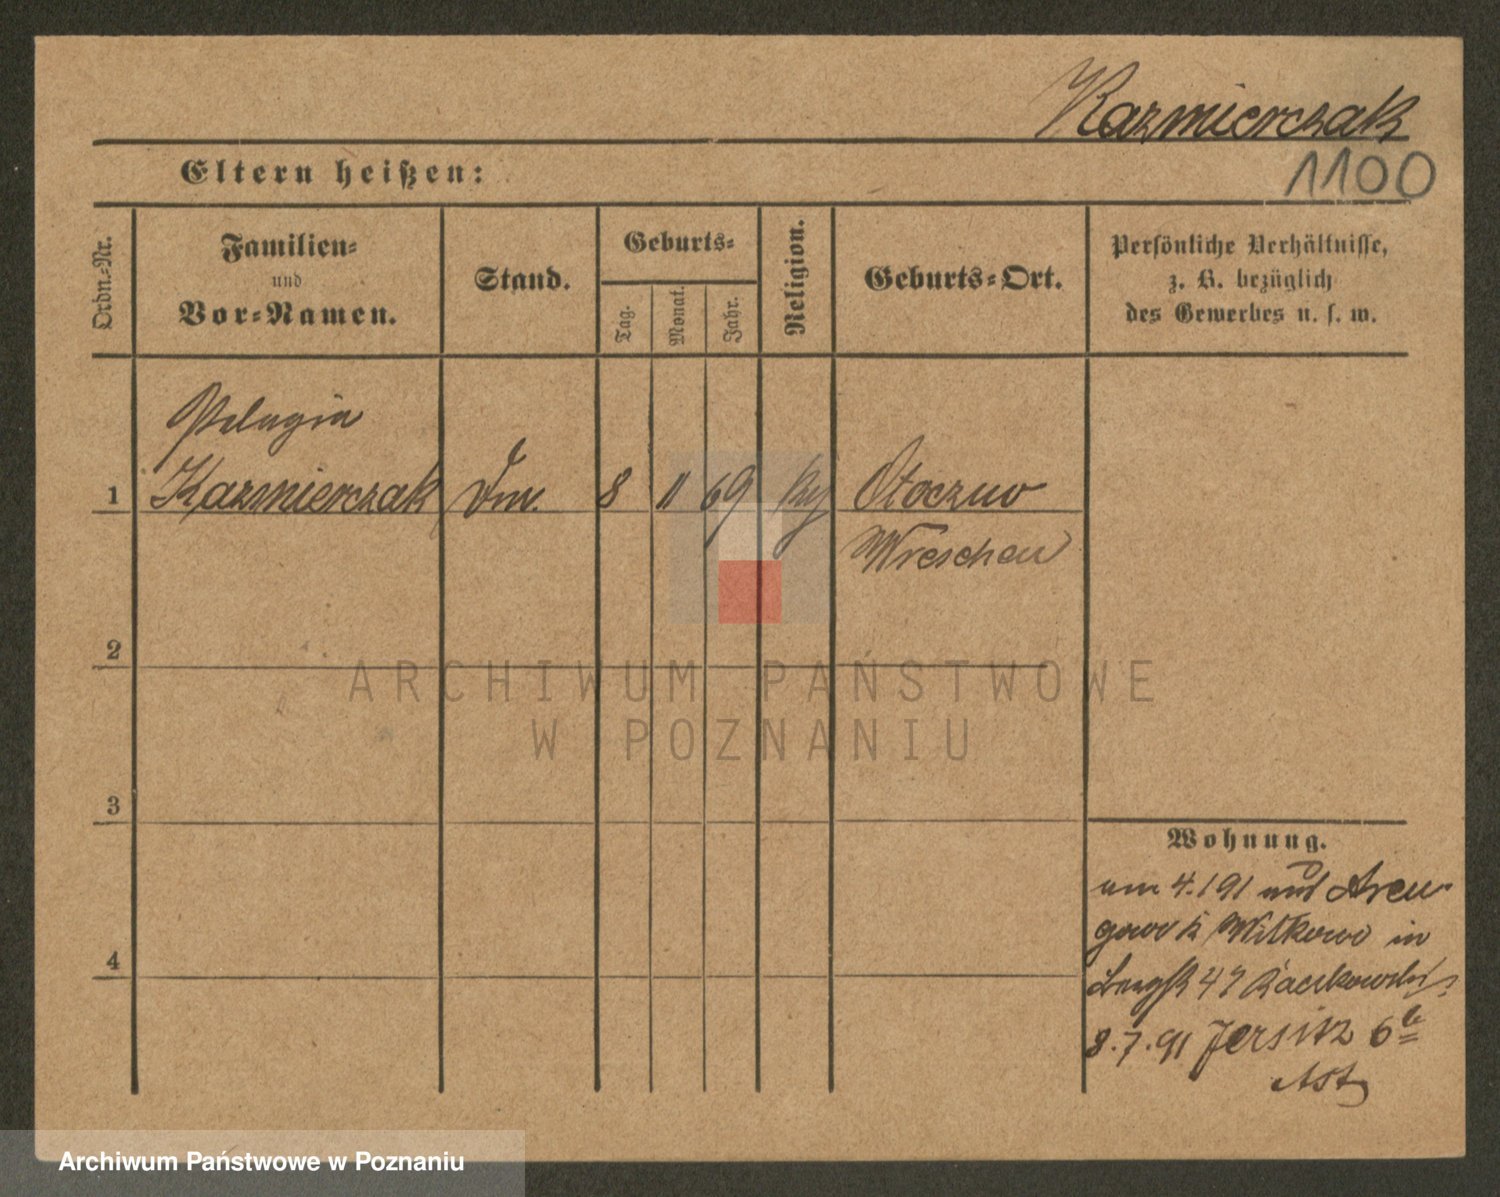 Kazmierczak
1100
Eltern heißen:
Ordn.-Nr.
Familien-
und
Vor-Namen.
Stand.
Geburts-
Tag.
Monat.
Jahr.
Religion.
Geburts-Ort.
Persönliche Verhältnisse,
z. B. bezüglich
des Gewerbes u. s. w.
Pelagia
1 Kazmierczak 8 11 69 Otoczno
Wreschen
2
3
4
ARCHIWUM PAŃSTWOWE
W POZNANIU
Wohnung.
am 4.1 91 auf
Witkowo in
47
8.7.91 Jersitz 6
Archiwum Państwowe w Poznaniu